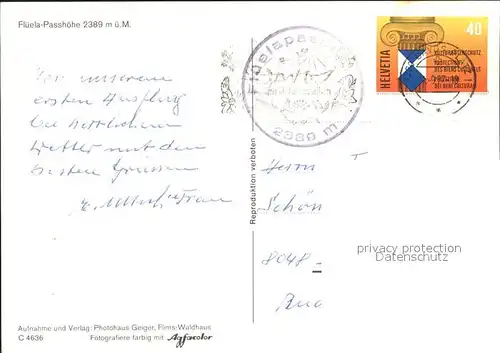 Flüela-Passhöhe 2389 m ü.M.
Von unserem
ersten Ausflug
bei herrlichem
Wetter mit den
besten Grüssen
Frau
Flüelapass
2389 m.
HELVETIA
40
KULTURGÜTERSCHUTZ
PROTECTION
DES BIENS CULTURELS
DEI BENI CULTURALI
Reproduktion verboten
Herrn
Schön
8048 -
privacy protection
Datenschutz
Aufnahme und Verlag: Photohaus Geiger, Flims-Waldhaus
C 4636
Fotografiere farbig mit Agfacolor